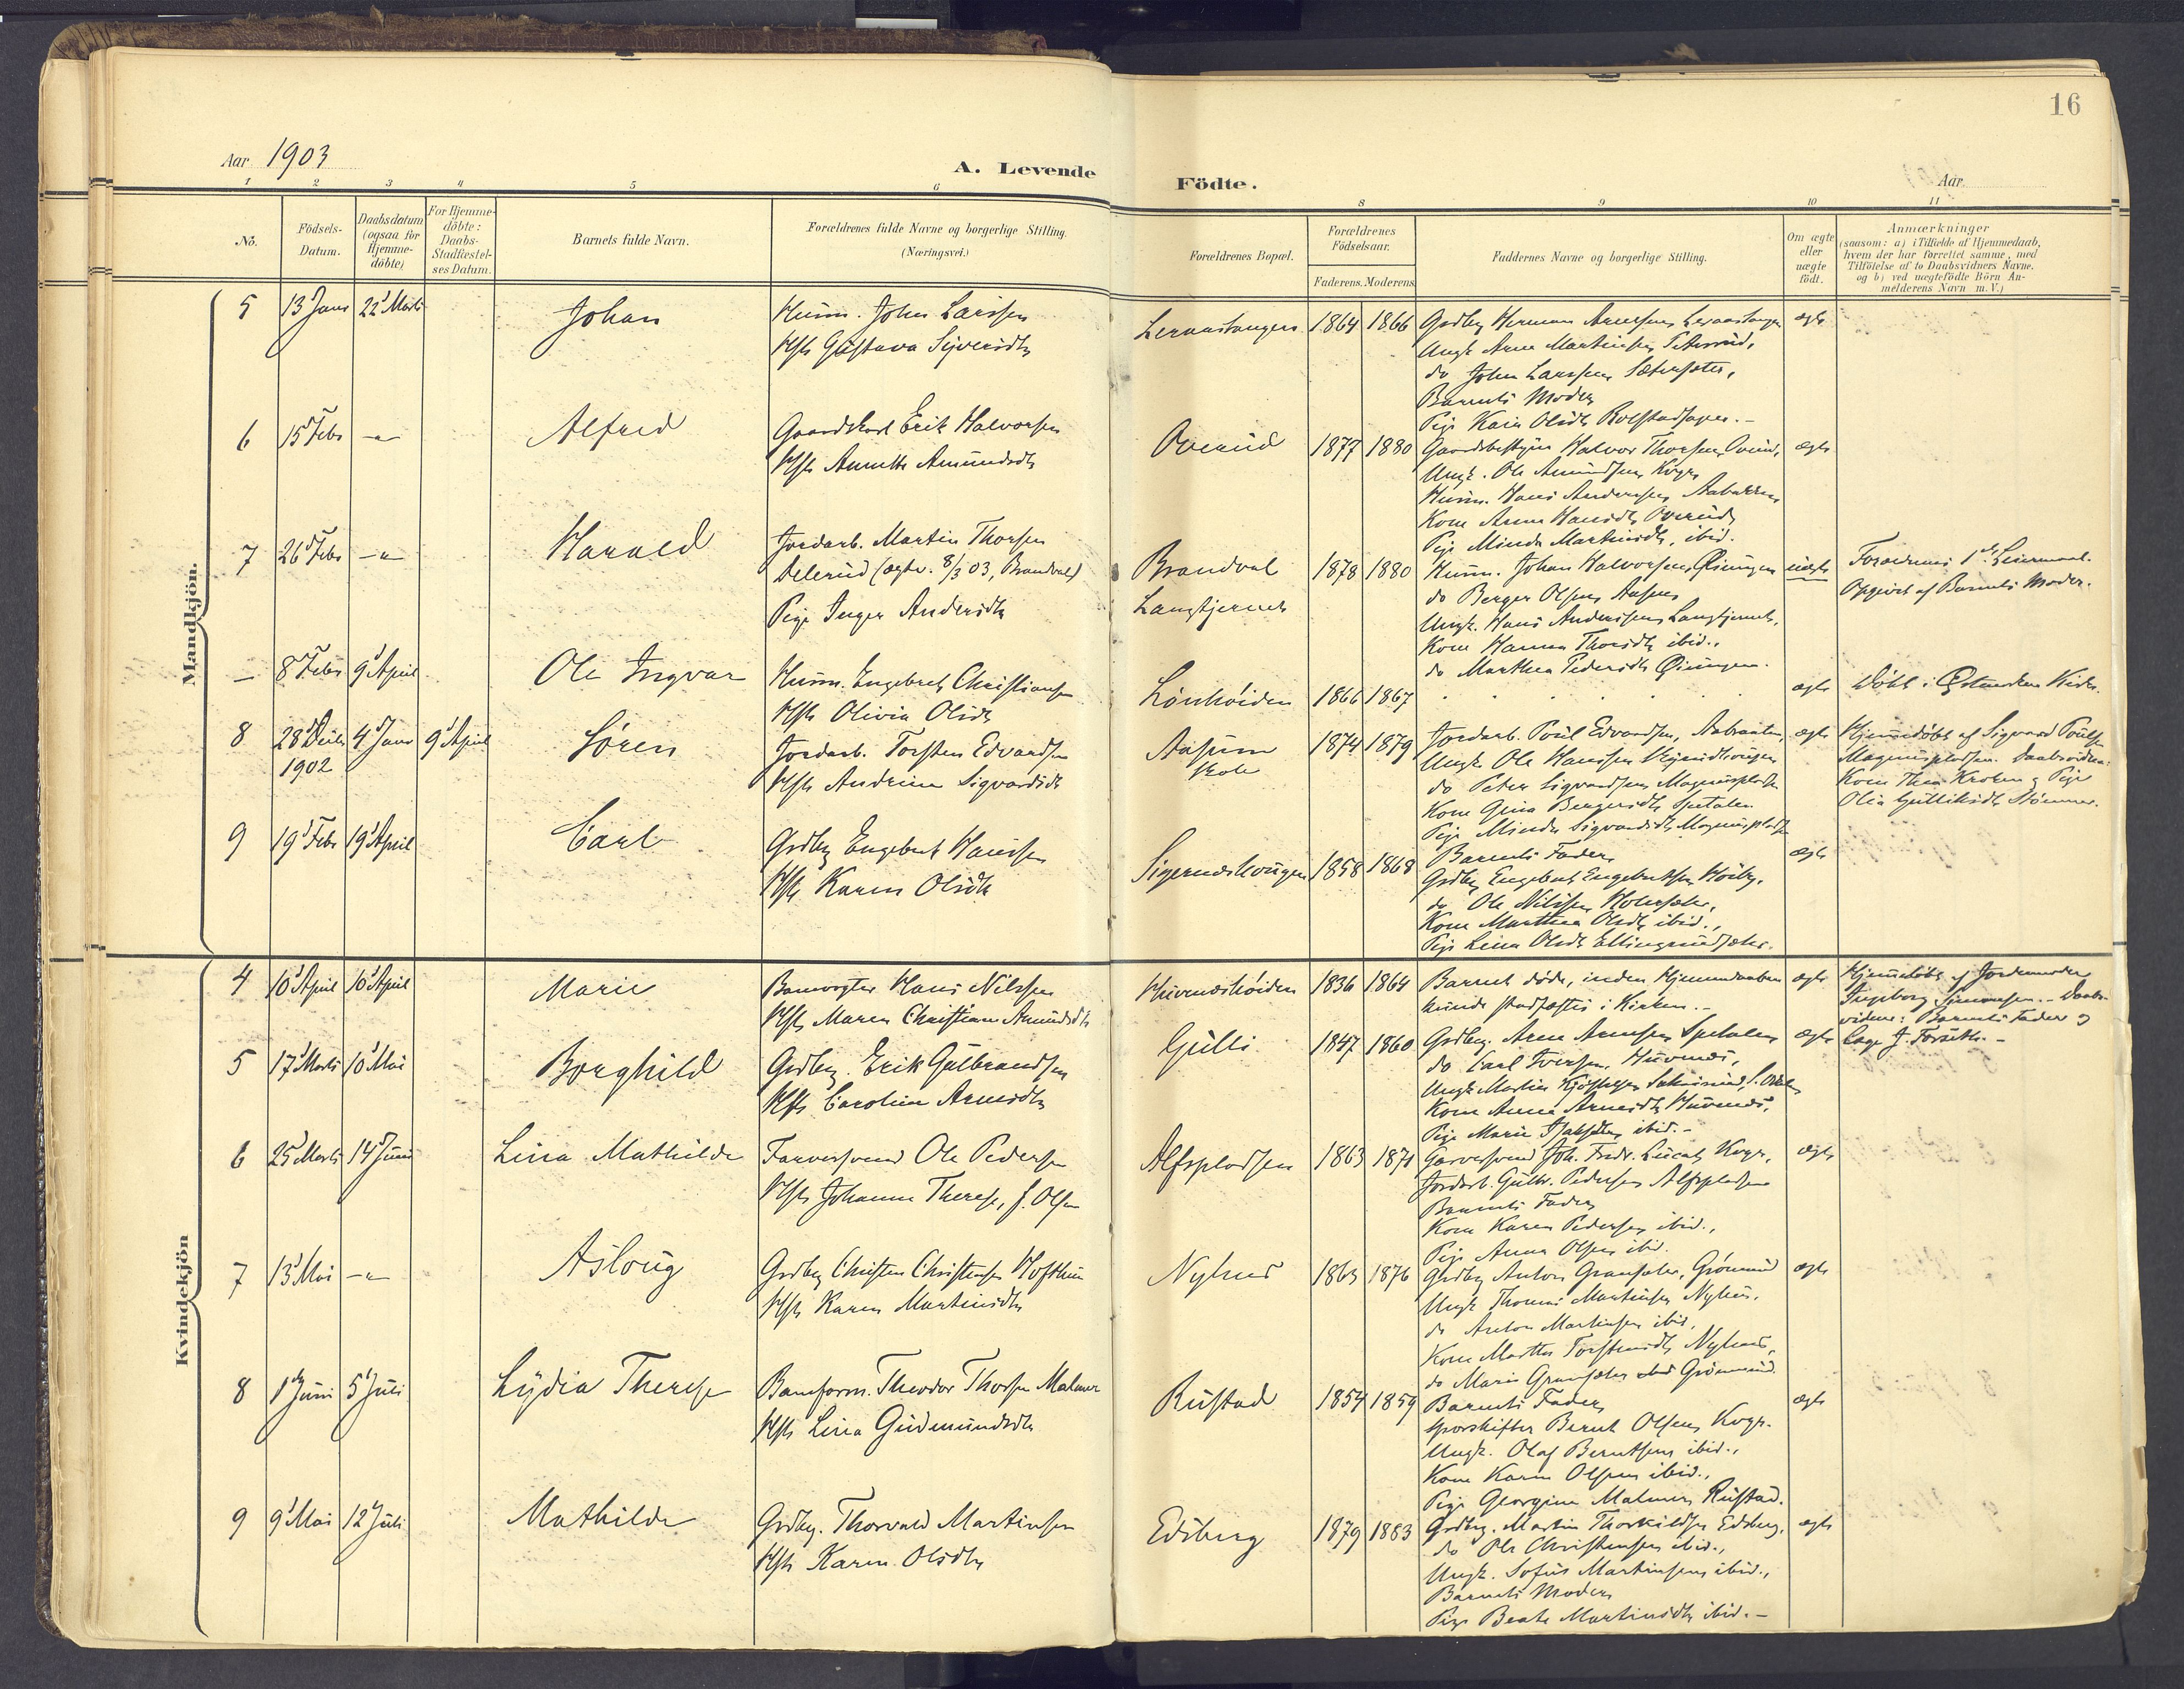 16
Aar 1903
A. Levende Födte.
Aar
1 2 3 4 5 6 8 9 10 11
No.
Födsels-Datum.
Daabsdatum (ogsaa for Hjemme-döbte)
For Hjemme-döbte: Daabs-Stadfæstel-ses Datum.
Barnets fulde Navn.
Forældrenes fulde Navne og borgerlige Stilling. (Næringsvei.)
Forældrenes Bopæl.
Forældrenes Födselsaar.
Faderens. Moderens.
Faddernes Navne og borgerlige Stilling.
Om ægte eller uægte födt.
Anmærkninger
(saasom: a) i Tilfælde af Hjemmedaab,
hvem der har forrettet samme, med
Tilföielse af to Daabsvidners Navne,
og b) ved uægtefödte Börn An-
melderens Navn m. V.)
Mandkjön.
5 13 Janr 22 Marts Johan
Husm. John Larssen
Hst Gustava Syversdtr
1864 1866 ægte
Ungk Arne Martinsen
do John Larssen Sætersæter,
Barnets Moder
Pige Kaia Olsdtr
6 15 Febr -"- Alfred
Gaardskarl Erik Halvorsen
Hst Annette Amundsdtr
Overud 1877 1880 ægte
Gaardsbestyrer Halvor Thorsen Overud,
Ungk. Ole Amundsen Kvgr.
Husm. Hans Andersen
Kone Anne Hansdtr Overud
Pige Minda Martinsdtr, ibid.
7 26 Febr -"- Harald
Jordarb. Martin Thorsen
(ægtev. 8/3 03, Brandval)
Pige Inger Andersdtr
Brandval
Langtjernet
1878 1880 uægte
Husm. Johan Halvorsen
do Berger Olsen Aasen
Ungk. Hans Anderssen Langtjernet,
Kone Hanna Thorsdtr ibid.,
do Marthea Pedersdtr
Forældrenes 1ste Leiermaal.
Opgivet af Barnets Moder.
— 8 Febr 9 April Ole Ingvar
Husm. Engebret Christiansen
Hst Olivia Olsdtr
Lönhöiden 1866 1867 ægte
Döbt i Kirke.
8 28 Decbr 1902 4 Janr 9 April Sören
Jordarb. Torsten Edvardsen
Hst Andrine Sigvardsdtr
Aasum skole
1874 1879 ægte
Jordarb. Poul Edvardsen,
Ungk Ole Hanssen
do Peter Sigvardsen Magnusplads
Kone Gina Bergersdtr Spetalen
Pige Minda Sigvardsdtr Magnusplads
Hjemmedöbt af Sigvard Poulsen
Magnuspladsen. Daabsvidner:
Kone Thea Kroken & Pige
Olia Gulliksdtr
9 19 Febr 19 April Carl
Grdbr Engebret Hanssen
Hst Karen Olsdtr
1858 1868 ægte
Barnets Fader,
Grdbr Engebret Engebretsen Höiby,
do Ole Nilssen
Kone Marthea Olsdtr ibid.,
Pige Lina Olsdtr Ellingrudsæter.
Kvindekjön
4 10 April 10 April Marie
Banevogter Hans Nilssen
Hst Maren Christiane Amundsdtr
1836 1864 ægte
Barnet döde, inden Hjemmedaaben
kunde stadfæstes i Kirken.—
Hjemmedöbt af Jordemoder
Ingeborg Simonsen. — Daabs-
vidner: Barnets Fader og
5 17 Marts 10 Mai Borghild
Grdbr. Erik Gulbrandsen
Hst Caroline Arnesdtr
Gulli 1847 1860 ægte
Grdbr. Arne Arnesen Spetalen
do Carl Iversen,
Ungk Martin
Kone Anne Arnesdtr
Pige Marie ibid.—
6 25 Marts 14 Juni Lina Mathilde
Farversvend Ole Pedersen
Hst Johanne Therese, f. Olsen
Alfspladsen 1863 1871 ægte
Garversvend Joh. Fredr. Kvgr.
Jordarb. Gulbr. Pedersen Alfspladsen
Barnets Fader,
Kone Karen Pedersen ibid.,
Pige Anna Olsen ibid.
7 13 Mai -"- Aslaug
Grdbr Christen Christensen
Hst Karen Martinsdtr
Nyhus 1863 1876 ægte
Grdbr Anton
Ungk Thomas Martinsen Nyhus,
do Anton Martinsen ibid,
Kone Marthe Torstensdtr Nyhus,
do Marie
8 1 Juni 5 Juli Lydia Therese
Baneform. Theodor Thorsen Malmer
Hst Lina Gudmundsdtr
Rustad 1854 1859 ægte
Barnets Fader,
Sporskifter Bernt Olsen Kvgr.
Ungk. Olaf Berntsen ibid.,
Kone Karen Olsen ibid.,
Pige Georgine Malmer Rustad.
9 9 Mai 12 Juli Mathilde
Grdbr. Thorvald Martinsen
Hst Karen Olsdtr
Edsberg 1879 1883 ægte
Grdbr. Martin Thorkildsen Edsberg,
do Ole Christensen ibid.,
Ungk. Sofus Martinsen ibid.,
Barnets Moder,
Pige Beate Martinsdtr ibid.—